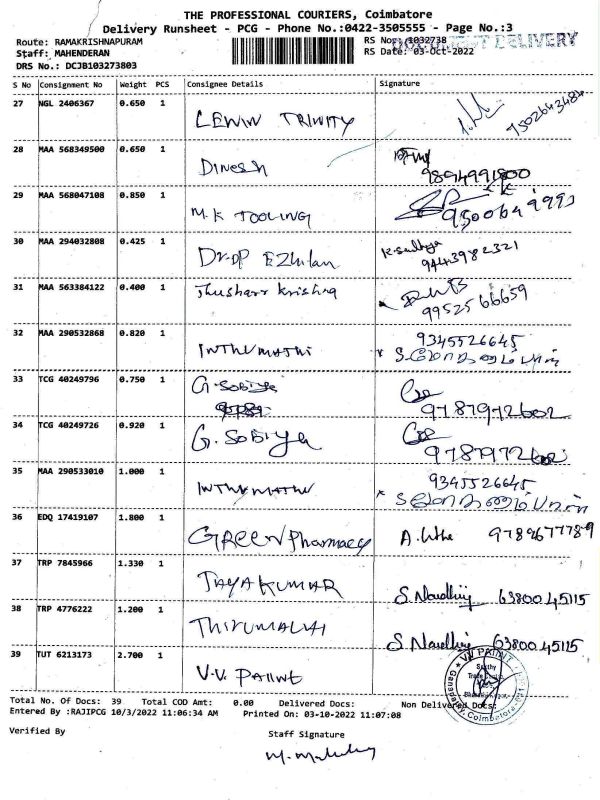 THE PROFESSIONAL COURIERS, Coimbatore
Delivery Runsheet - PCG - Phone No.:0422-3505555 - Page No.:3
Route: RAMAKRISHNAPURAM
RS No.: 1032738
Staff: MAHENDERAN
RS Date: 03-Oct-2022
DRS No.: DCJB103273803
DOCUMENT DELIVERY
S No Consignment No Weight PCS Consignee Details Signature
27 NGL 2406367 0.650 1 LEWIN TRINITY 7502643484
28 MAA 568349500 0.650 1 Dinesh 9894991800
29 MAA 568047108 0.850 1 M.K TOOLING
30 MAA 294032808 0.425 1 Dr.DP EZhilan 9443982321
31 MAA 563384122 0.400 1 Thushar Krishna 9952566659
32 MAA 290532868 0.820 1 INTHUMATHI 9345526645
33 TCG 40249796 0.750 1 G.Sobiya 9787972602
34 TCG 40249726 0.920 1 G.Sobiya
35 MAA 290533010 1.000 1 INTHUMATHI 9345526645
36 EDQ 17419107 1.800 1 GREEN Pharmacy 9789677789
37 TRP 7845966 1.330 1 JAYAKUMAR 63800 45115
38 TRP 4776222 1.200 1 THIRUMALAI 63800 45115
39 TUT 6213173 2.700 1 V.V. PAINT
V.V PAINT
Coimbatore
Total No. Of Docs: 39 Total COD Amt: 0.00 Delivered Docs: Non Delivered Docs:
Entered By :RAJIPCG 10/3/2022 11:06:34 AM Printed On: 03-10-2022 11:07:08
Verified By Staff Signature